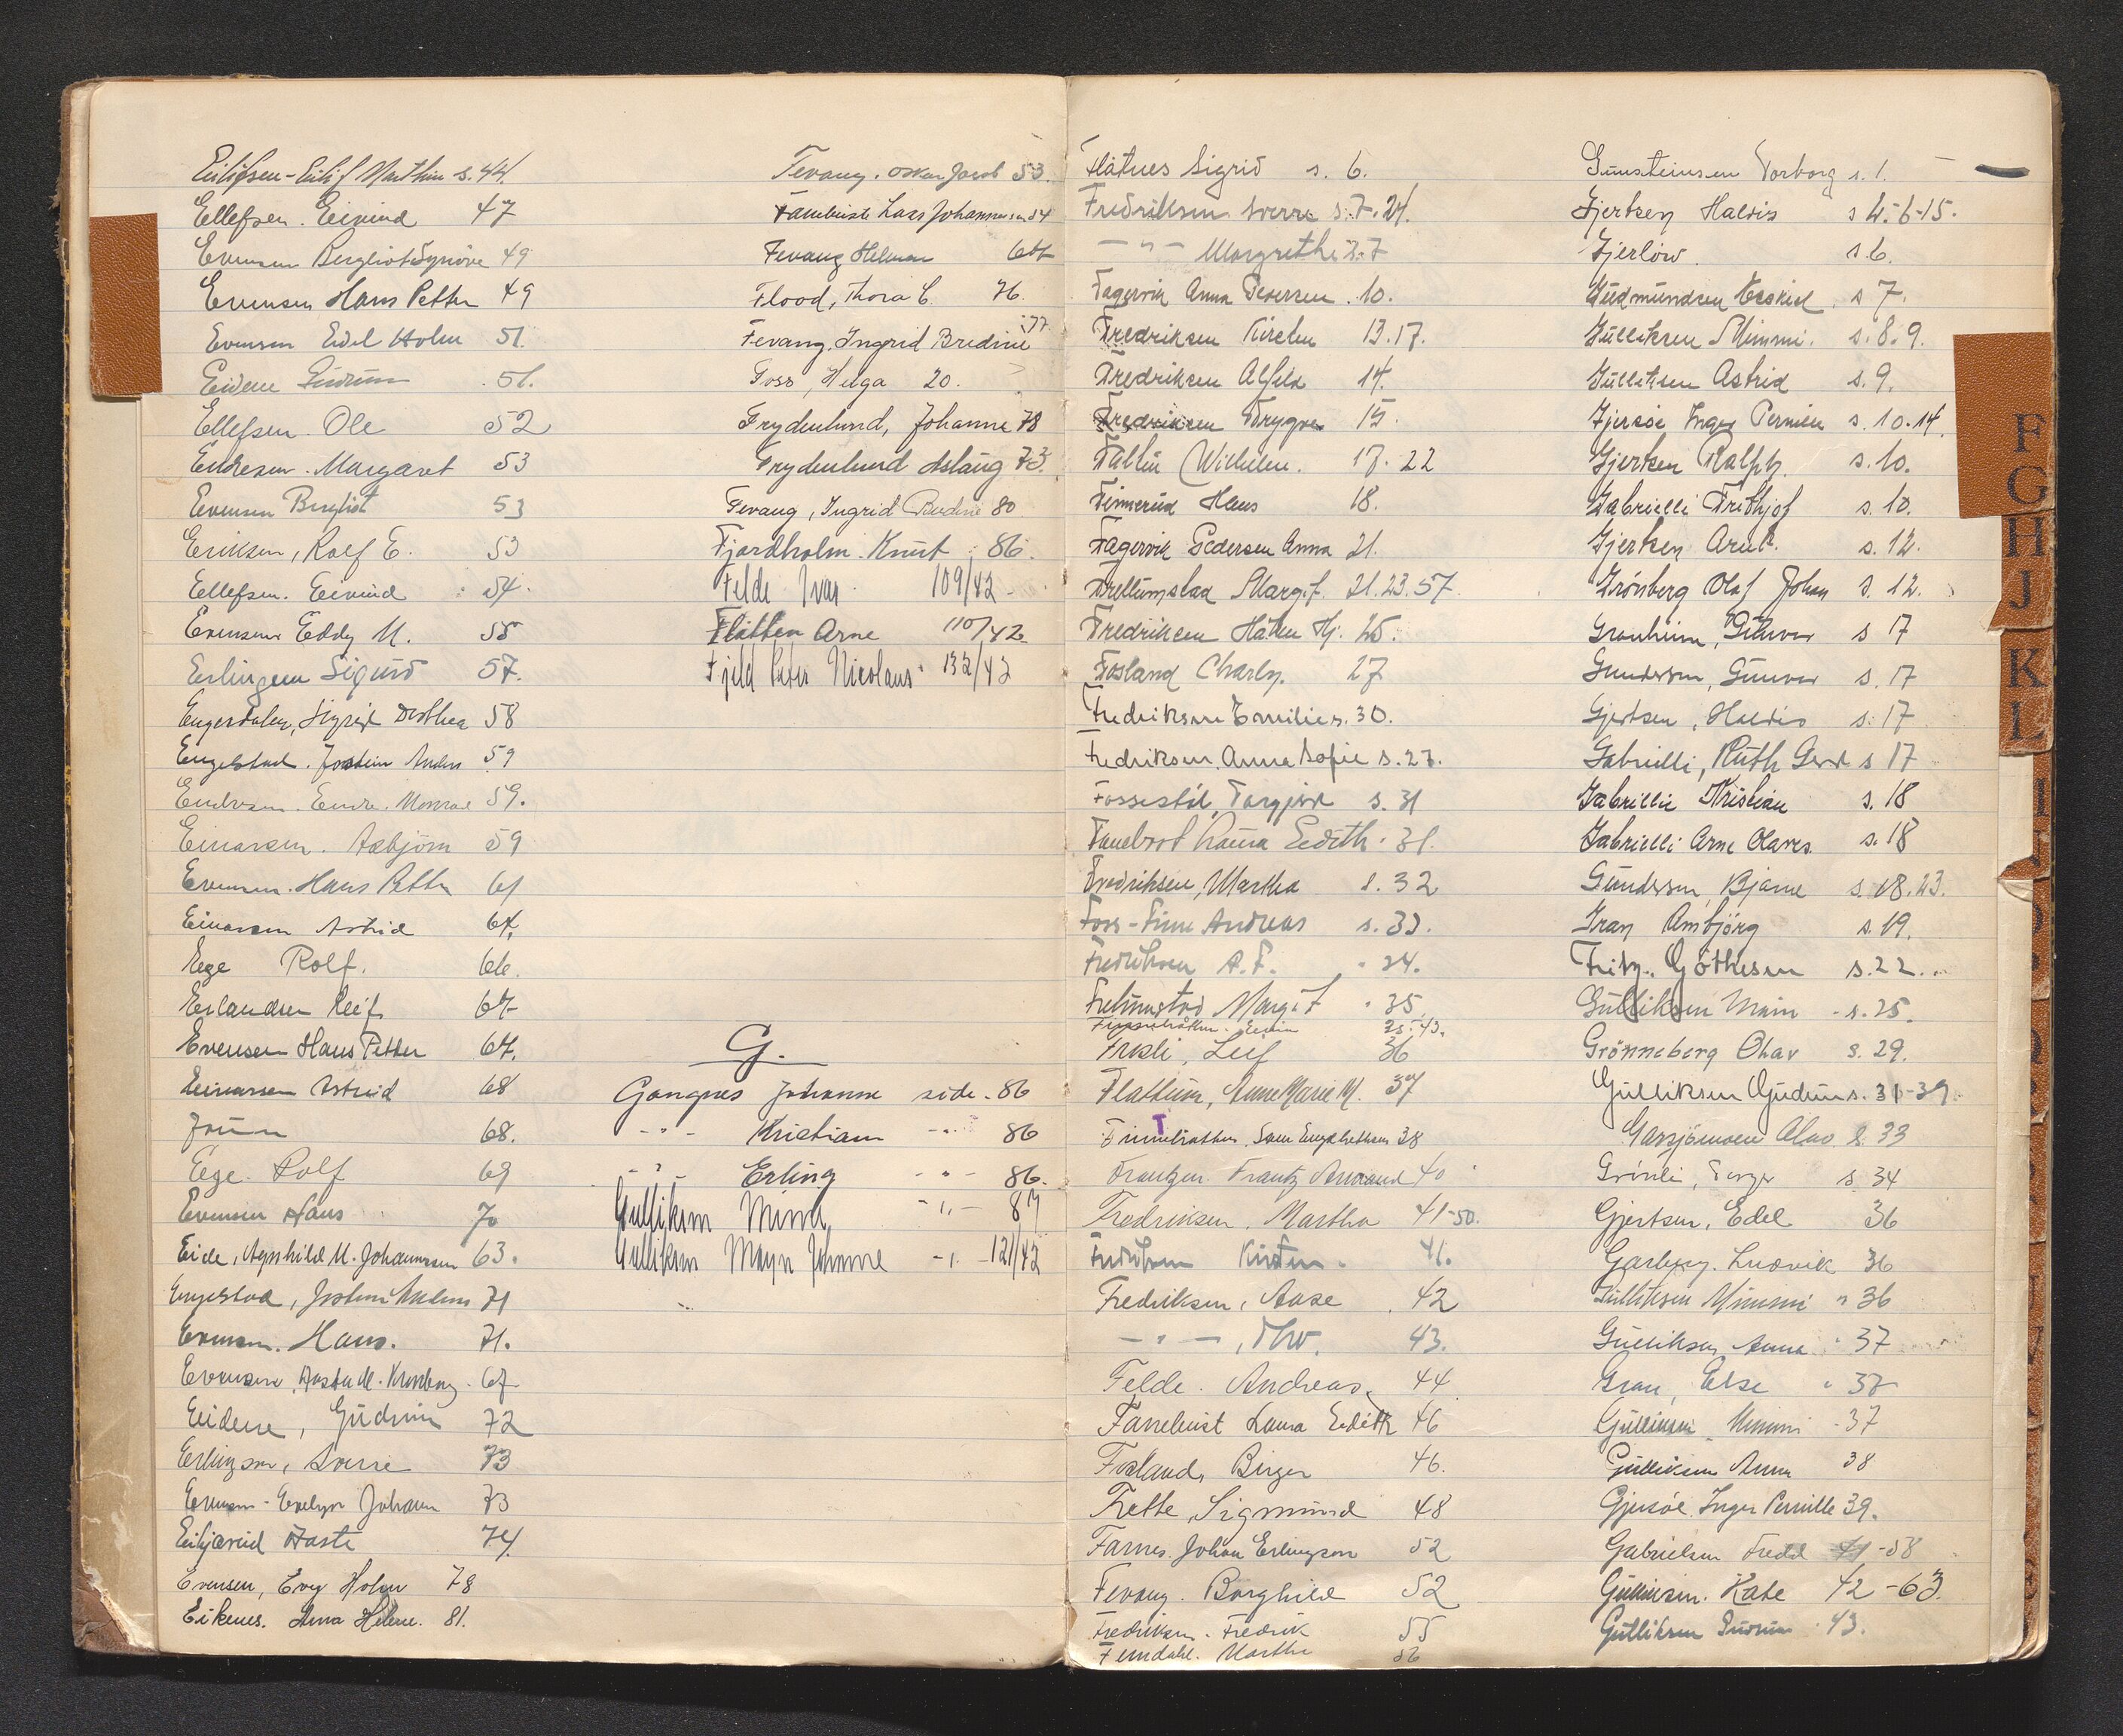 Eilifsen - Eilif Marthin s. 44.
Ellefsen. Eivind 47
Evensen Bergliot Synöve 49
Evensen Hans Petter 49
Evensen Edel Holm 51.
Eidene Gudrun 51.
Ellefsen. Ole 52
Endresen. Margaret 53
Evensen Bergliot 53
Eriksen, Rolf E. 53
Ellefsen. Eivind 54.
Evensen Eddy M. 55
Erlingsen Sigurd 57.
Engerdalen, Sigrid Dorthea 58
Engelstad. Jostein Anders 59
Endresen. Endre. Monrad 59.
Einarsen. Asbjörn 59
Evensen. Hans Petter 61
Einarsen Astrid 64.
Ege Rolf. 66.
Erlandsen Leif 67
Evensen Hans Petter 67.
Einarsen Astrid 68
68.
Ege. Rolf 69
Evensen Hans 70
Eide, Agnhild M. Johannessen 63.
Engelstad, Jostein Anders 71
Evensen. Hans. 71.
Evensen, Aasta M. 67
Eidene, Gudrun 72
Erlingsen, Sverre 73
Evensen - Evelyn Johanne 73
Aaste 74.
Evensen, Evy Holm 78
Eikenes. Anna Helene. 81.
Fevang. Oskar Jacob 53.
Famekvist Lars Johannessen 54
Fevang Helmer 64
Flood, Thora C. 76.
77
Fevang, Ingrid Bredine
Foss, Helga 20.
Frydenlund, Johanne 78
Frydenlund Aslaug 73.
Fevang, Ingrid Bredine 80
Fjordholm. Knut 86.
Felde Ivar 109/42
Flåtten Arne 110/42
Fjeld Peter Nicolaus 132/43
G.
Gangnes Johanne side - 86
- " - Kristian - " - 86
- " - Erling - " - 86.
Gulliksen Minna, - " - 87
Gulliksen Mayn Johanne - " - 121/42
Flåtnes Sigrid s. 6.
Fredriksen Sverre s. 7. 24.
- " - Margrethe s. 7
Fagervik Anna Pedersen. 10.
Fredriksen Kirsten 13. 17.
Fredriksen Alfild 14.
Fredriksen Trygve 15.
Fallin Wilhelm. 17. 22
Finnerud Hans 18.
Fagervik Pedersen Anna 21.
Frellumstad Margit. 21. 23. 57.
Fredriksen Håken Hj. 25.
Fosland Charly. 27
Fredriksen Emilie s. 30.
Fredriksen, Anna Sofie s. 27.
Fossestöl, Torgjerd s. 31
Laura Edith. 31.
Fredriksen, Martha s. 32
Foss - Finn Andreas s. 33.
Fredriksen A. F. " 34.
Margit " 35
35 - 43.
Frøsli, Leif 36
Flattum, Anne Marie M. 37
T
38
Frantzen. Frantz Amand 40
Fredriksen. Martha 41-50.
Fredriksen Kirsten. 41.
Fredriksen, Aase 42
- " -, Thv. 43.
Felde. Andreas. 44
Famekvist Laura Edith 46
Fosland, Birger 46.
Frette, Sigmund 48
Farnes. Johan Erlingsen 52
Fevang. Borghild 52
Fredriksen. Fredrik 55
Femdahl. Marthe 56
Gunsteinsen Torborg s. 1.
Gjertsen Haldis s 4.-6-15.
Gjerlöw. s 6.
Gudmundsen Asskid. s 7.
Gulliksen Mimmi. s. 8. 9.
Gulliksen Astrid s. 9.
Gjersöe Inger Pernille s. 10. 14.
Gjertsen Ralph. s. 10.
Gabrielli Fridthjof s. 10.
Gjertsen Arnt. s. 12.
Grönberg Olaf Johan s. 12.
Granheim, Gunvor s 17
Gundersen, Gunvor s. 17
Gjertsen, Haldis s. 17
Gabrielli, Ruth Gerd s 17
Gabrielli Kristian s. 18
Gabrielli Arne Olaves. s. 18
Gundersen, Bjarne s. 18. 23.
Gran Arnbjörg s. 19.
Fritz. Göthesen s. 22.
Gulliksen Mimmi - s. 25.
Grönneberg Olav s. 29.
Gulliksen Gudrun s. 31-39.
Olav s. 33
Grönli, Torger s. 34
Gjertsen, Edel 36
Garberg. Ludvik 36
Gulliksen Mimmi " 36
Gulliksen, Anna " 37
Gran, Else " 37
Gulliksen Mimmi - 37
Gulliksen Anna 38
Gjersöe. Inger Pernille 39.
Gabrielsen Fredd 41 - 58
Gulliksen. Kate 42 - 63.
Gulliksen Gudrun 43.
F
G
H
J
K
L